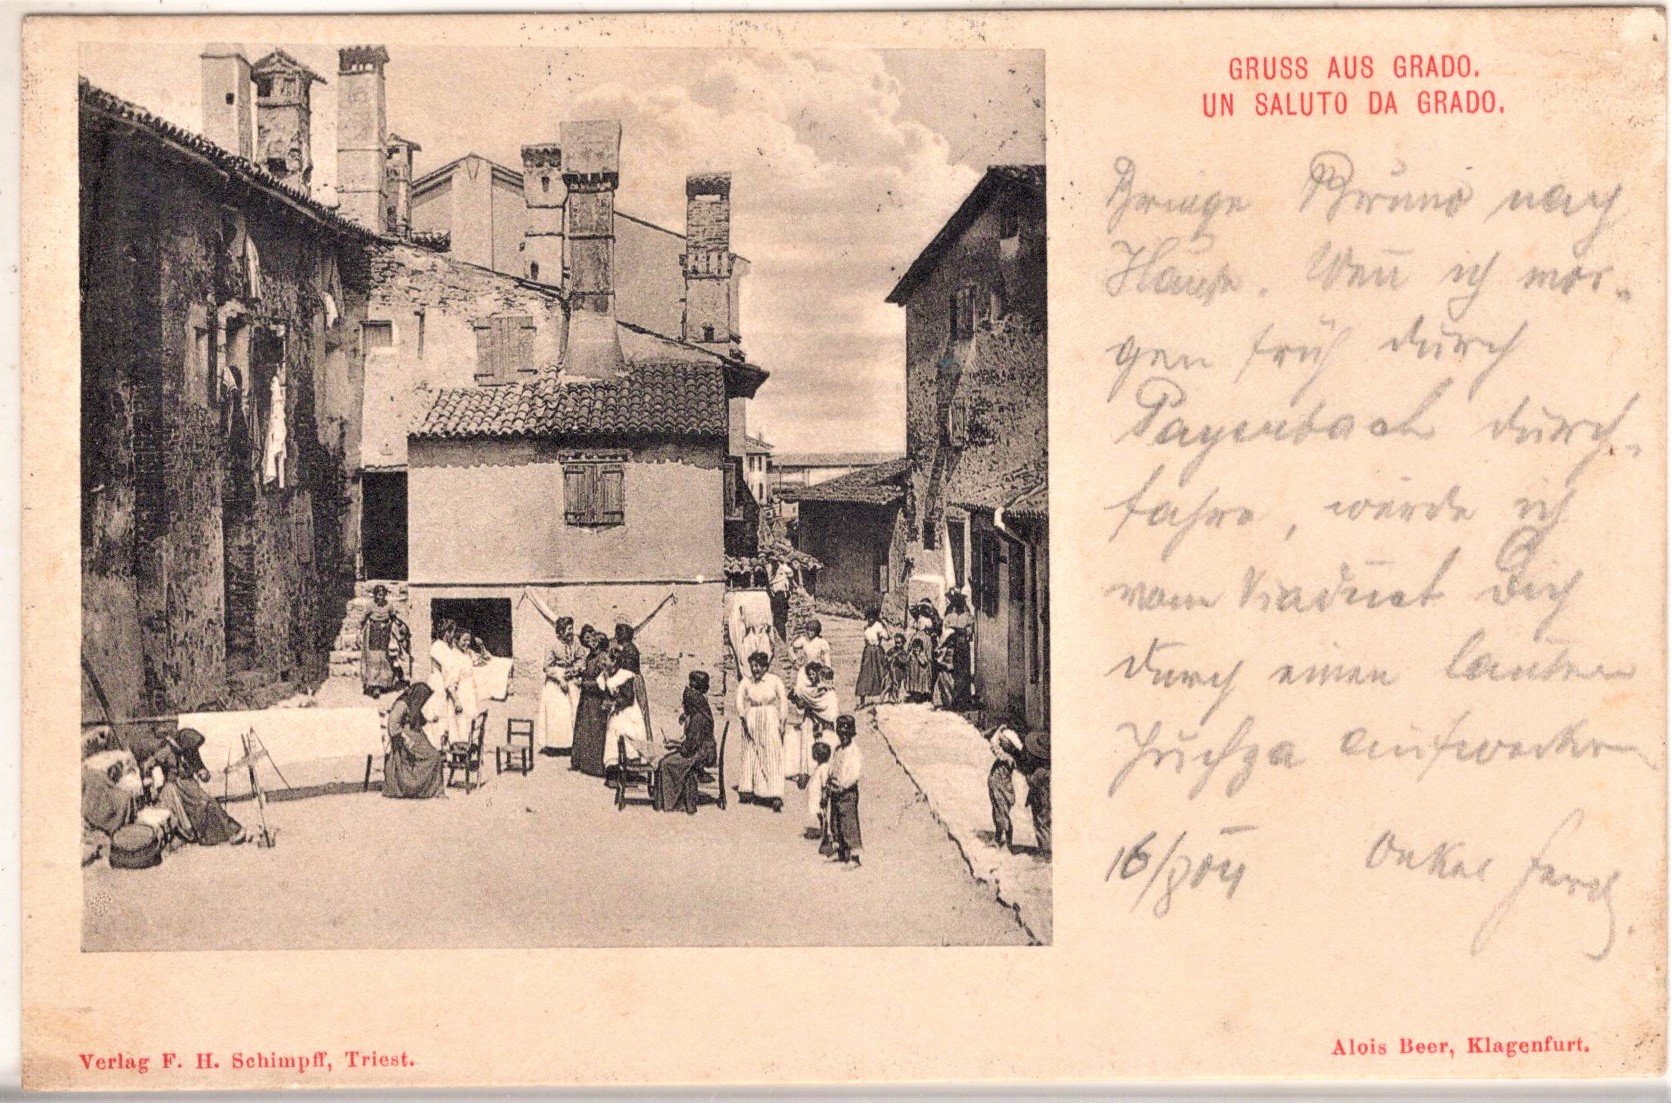 GRUSS AUS GRADO.
UN SALUTO DA GRADO.
Bringe Bruno nach
Hause. Weñ ich mor-
gen früh durch
Payerbach durch-
fahre, werde ich
vom Viaduct Dich
durch einen lauten
Juchza aufwecken
16/8 04 Onkel Ferd.
Verlag F. H. Schimpff, Triest.
Alois Beer, Klagenfurt.